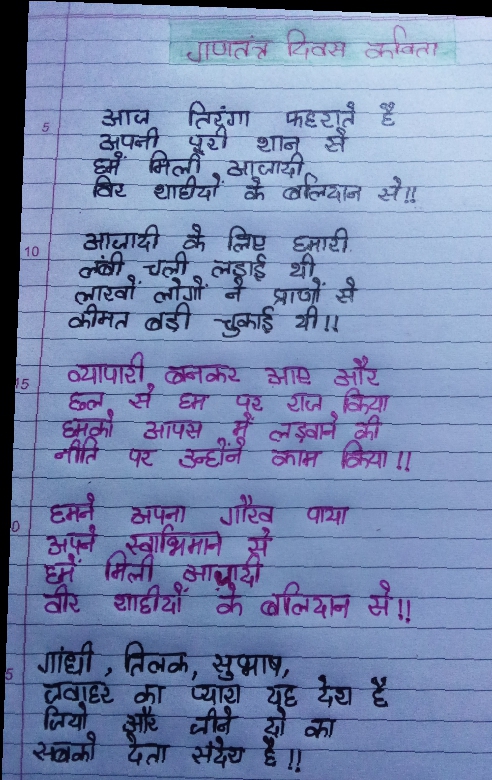 गणतंत्र दिवस कविता
5
आज तिरंगा फहराते है
अपनी पूरी शान से
हमें मिली आजादी
विर शहीदों के बलिदान से!!
10
आजादी के लिए हमारी
लंबी चली लड़ाई थी
लाखों लोगों ने प्राणों से
कीमत बड़ी चुकाई थी!!
15
व्यापारी बनकर आए और
छल से हम पर राज किया
हमको आपस में लड़वाने की
नीति पर उन्होंने काम किया!!
0
हमने अपना गौरव पाया
अपने स्वाभिमान से
हमें मिली आजादी
वीर शाहीदों के बलिदान से!!
5
गांधी, तिलक, सुभाष,
जवाहर का प्यारा यह देश है
जियो और जीने दो का
सबको देता संदेश है!!